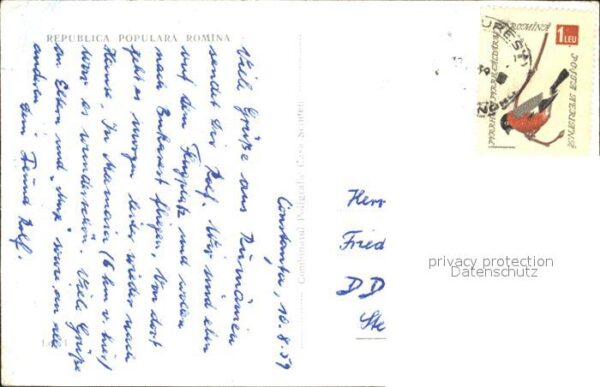 REPUBLICA POPULARA ROMÎNA
Constanța, 10.8.59
Viele Grüße aus Rumänien
sendet Dir Rolf. Wir sind eben
auf dem Flugplatz und wollen
nach Bukarest fliegen. Von dort
geht es morgen leider wieder nach
Hause. In Mamaia (6 km v. hier)
war es wunderschön. Viele Grüße
an Eltern und "Mux" sowie an alle
andern Dein Freund Rolf.
Combinatul Poligrafic Casa Scînteii
1 LEU
POSTA AERIANA
Herr
Fried
DD
privacy protection
Datenschutz